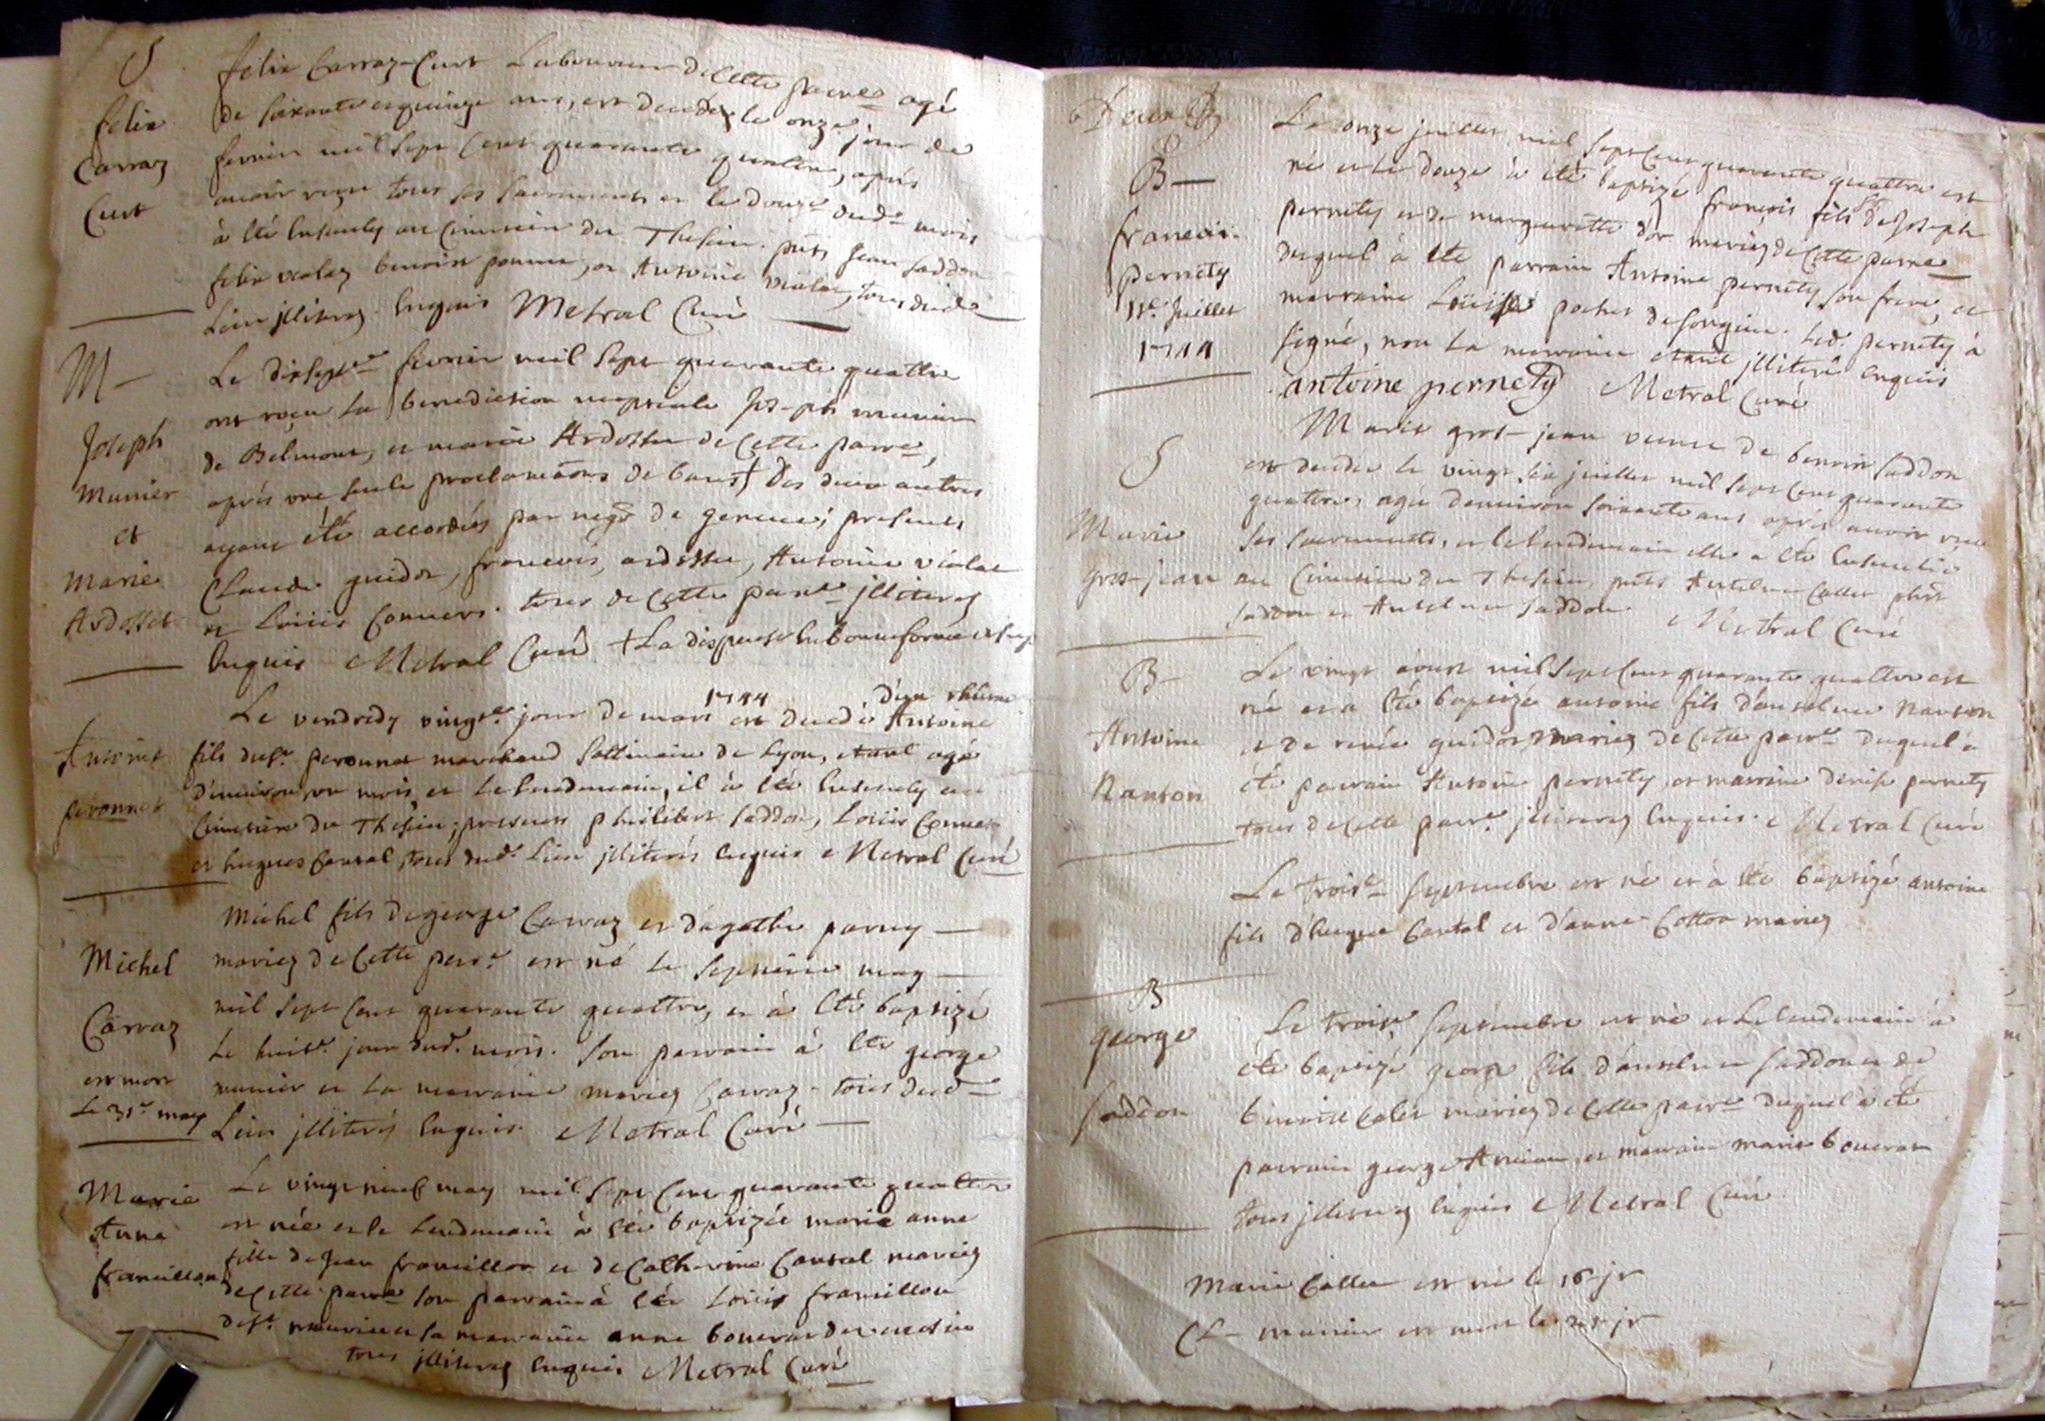 S
felix
Carraz
Curt
felix Carraz-Curt Laboureur de Cette parre agé
de soixante et quinze ans, est decedez le onze jour de
fevrier mil sept Cent quarante quatre, après
avoir reçu tous ses sacrements et le douze dud. mois
à été Ensevely au Cimetiere du Thesieu. pnts Jean saddon
felix violaz benoist pomme, et Antoine violat, tous dud.
Lieu jlliterez Enquis Metral Curé
M
Joseph
Munier
et
Marie
Ardosset
Le dixsept.e fevrier mil sept quarante quattre
ont reçu La benediction nuptiale Joseph munier
de Belmont, et marie Ardosset de Cette parre,
après une seule proclamations de bans † Des deux autres
ayant été accordées par de geneve; presents
Claude guidot, francois ardosset, Antoine violat
et Loüis Convers. tous de Cette parre jlliterez
Enquis Metral Curé † La dispense En bonne forme
Antoine
peronnet
Le vendredy vingt.e jour de mars 1744 est decedé d'un rhume Antoine
fils du sr. peronnet marchand de Lyon, etant agé
d'environ un mois, et le Lendemain, il à été Ensevely au
Cimetiere du Thesieu; presents philibert saddon, Loüis Convers
et hugues Cantal, tous dud. Lieu jlliterés Enquis Metral Curé
Michel
Carraz
est mort
Le 31.e may
Michel fils de george Carraz et d'agathe parvy
mariez de Cette parr.e est né le septieme may
mil sept Cent quarante quattre, et à été baptizé
Le huit.e jour dud. mois. Son parrain à été george
munier et La marraine mariez Carraz. tous dud.
Lieu jlliterés Enquis. Metral Curé
Marie
Anne
francillon
Le vingt neuf may mil sept Cent quarante quattre
est née et le Lendemain à été baptizée marie anne
fille de Jean francillon et de Catherine Cantal mariez
de Cette parre son parrain à été Loüis francillon
et sa marraine anne bouvar
tous jlliterez Enquis Metral Curé
B
francois
pernety
11.e Juillet
1744
Le onze juillet mil sept Cent quarante quattre est
né et le douze à été baptizé francois fils de Joseph
pernety et de marguerette d'or mariez de Cette parre
duquel à été parrain Antoine pernety son frere, et
marraine Loüise pochet de songieu. Led. pernety à
signé, non La marraine etant jlliteré Enquis
antoine pernety Metral Curé
S
Marie
gros-jean
Marie gros-jean veuve de benoist saddon
est decedée le vingt six juillet mil sept Cent quarante
quattre, agée d'environ soixante ans après avoir reçu
ses sacrements, et le Lendemain elle a été Ensevelie
au Cimetiere du Thesieu, pnts Antelme Callet phit
saddon et Antelme saddon. Metral Curé
B
Antoine
Nanton
Le vingt aoust mil sept Cent quarante quattre est
né et a été baptizé antoine fils d'antelme Nanton
et de renée guidot mariez de Cette parr.e duquel a
été parrain Antoine pernety, et marraine denise pernety
tous de Cette parr.e jlliterez Enquis. Metral Curé
Le trois.e septembre est né et à été baptizé antoine
fils d'hugue Cantal et d'anne Cotton mariez
B
george
saddon
Le trois.e septembre est né et Le Lendemain à
été baptizé george fils d'antelme saddon et de
benoite Calet mariez de Cette parr.e duquel à été
parrain george Ancian, et marraine marie bouvrat
tous jlliterez Enquis Metral Curé
Marie Callet est né le 16 jr
Cl- munier est mort le 21 jr